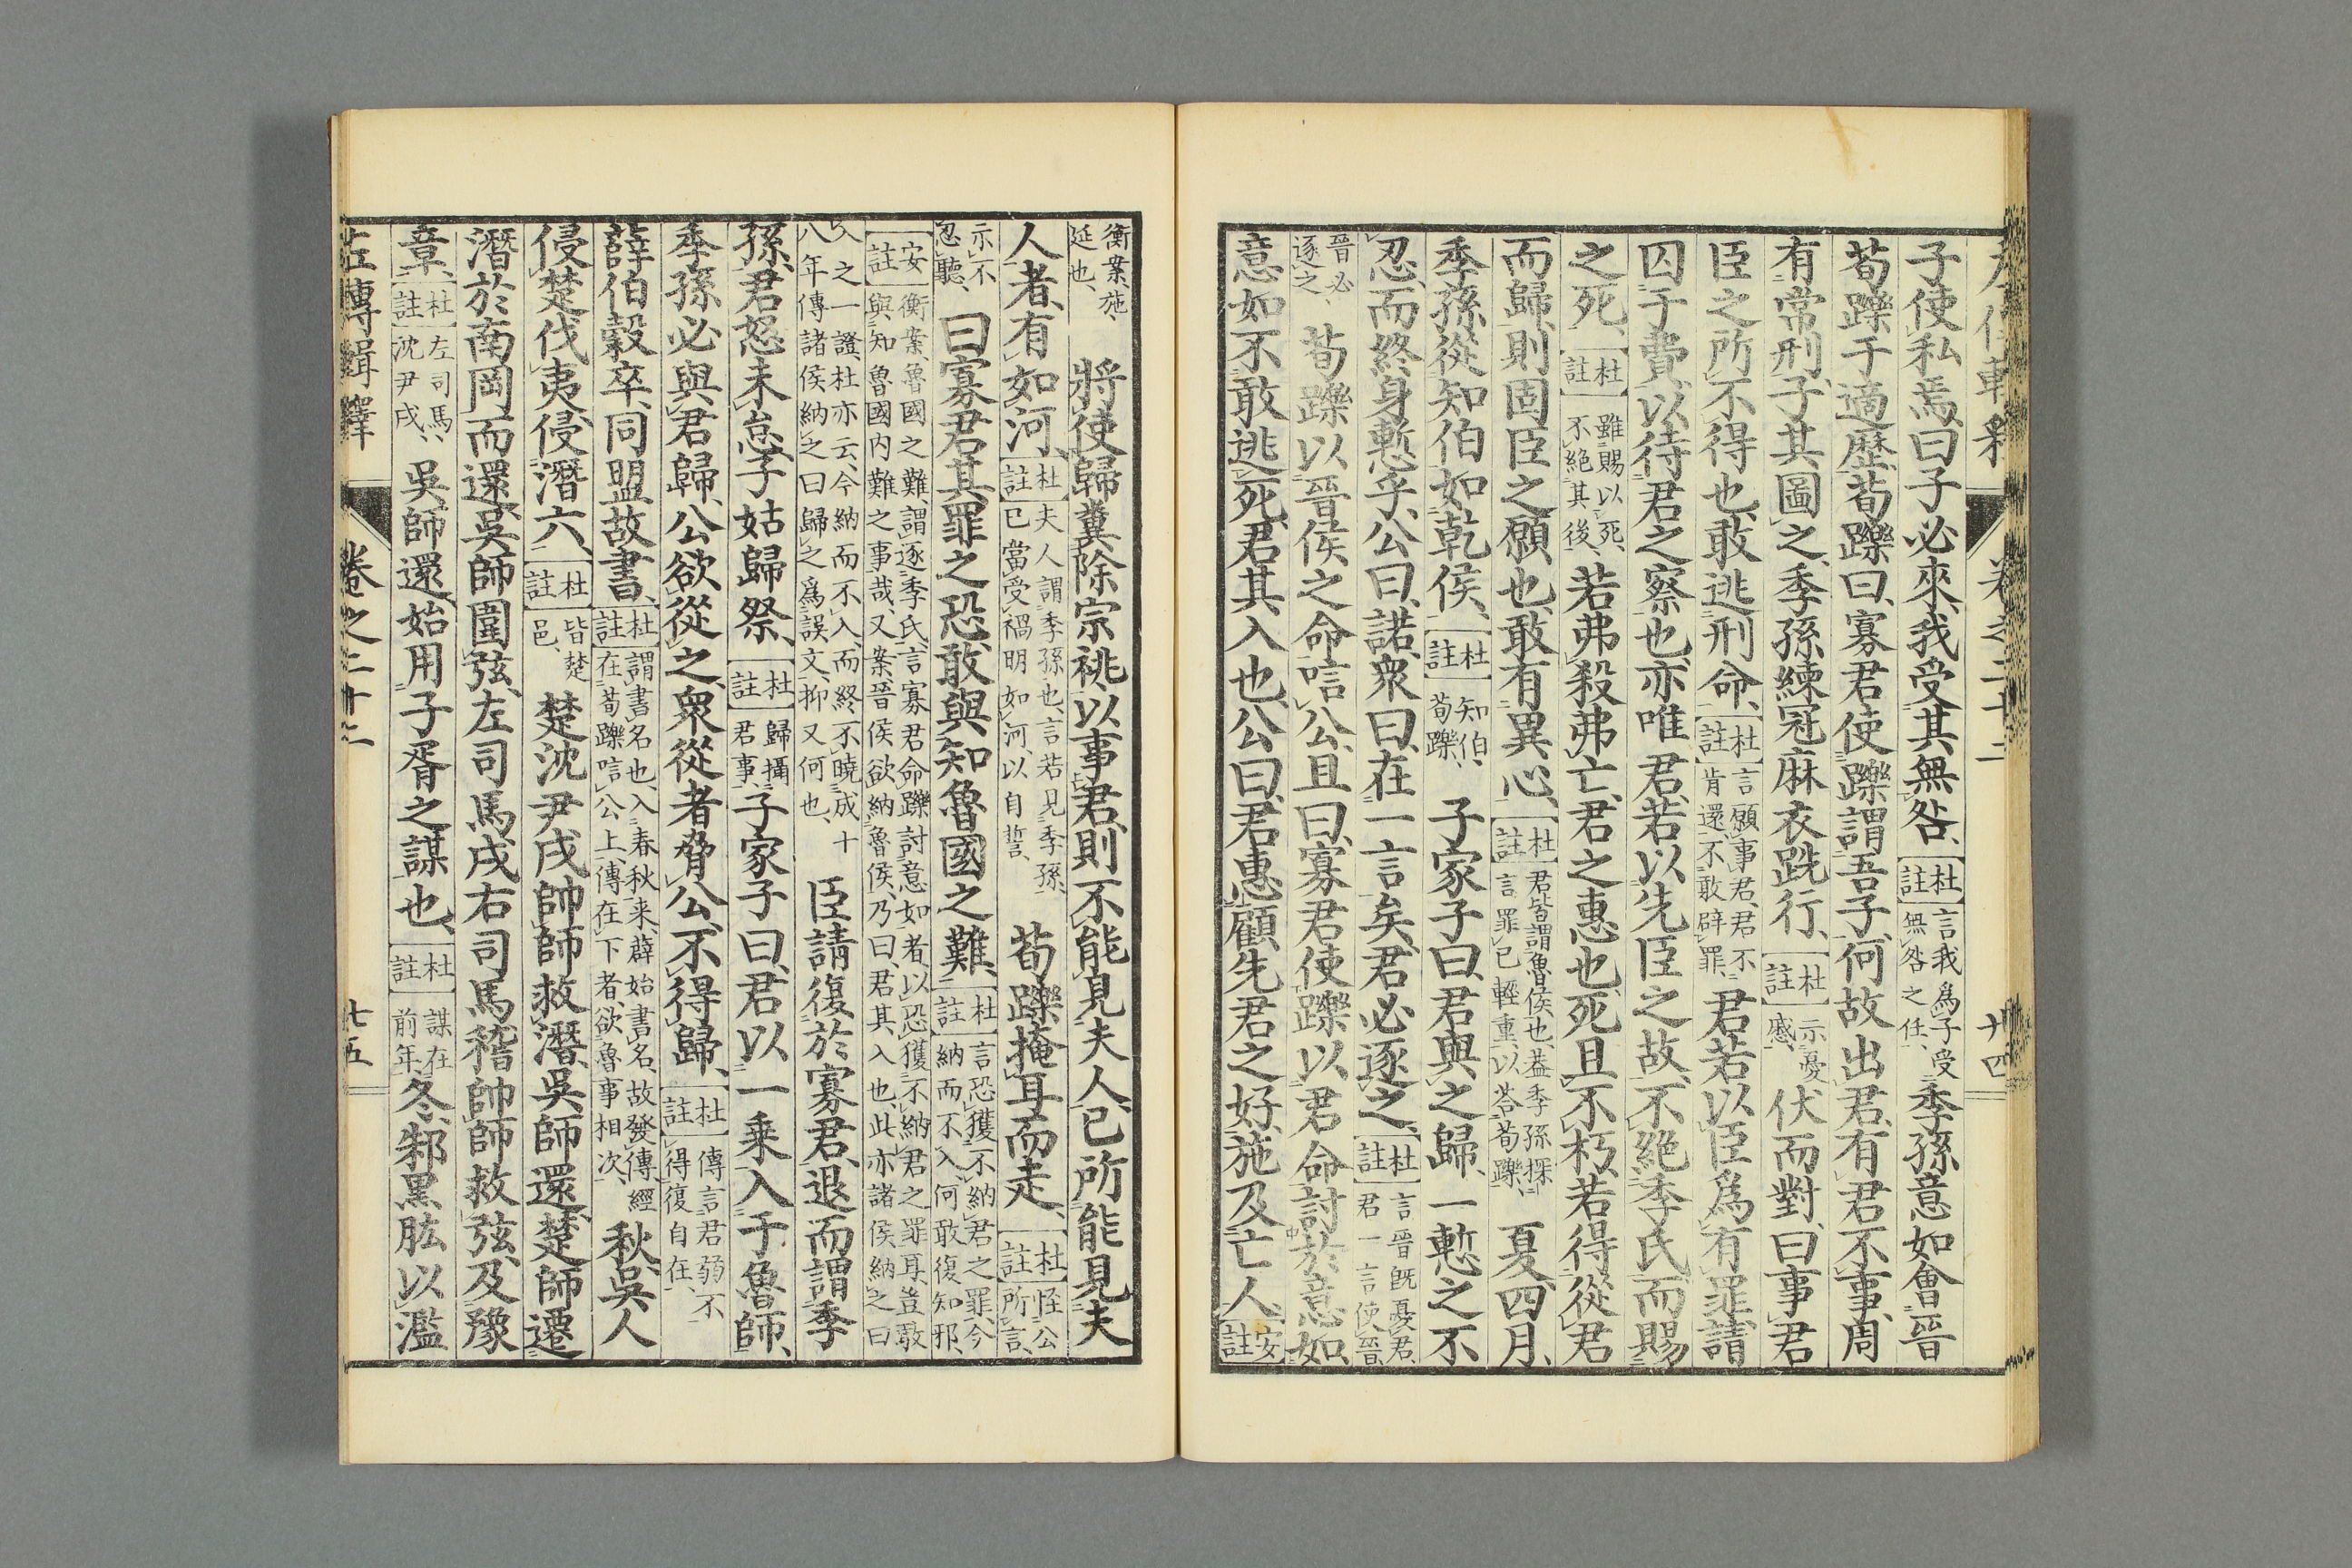 子使私焉、曰子必來、我受其無咎、杜註言我爲子受無咎之任、季孫意如會晉
荀躒于適歷、荀躒曰、寡君使躒謂吾子、何故出君、有君不事、周
有常刑、子其圖之、季孫練冠麻衣跣行、杜註示憂慼、伏而對曰、事君
臣之所不得也、敢逃刑命、杜註言願事君、君不肯還、不敢辟罪、君若以臣爲有罪、請
囚于費、以待君之察也、亦唯君、若以先臣之故、不絕季氏、而賜
之死、杜註雖賜以死、不絕其後、若弗殺弗亡、君之惠也、死且不朽、若得從君
而歸、則固臣之願也、敢有異心、杜註君皆謂魯侯也、蓋季孫探言罪已輕重、以荅荀躒、夏四月、
季孫從知伯如乾侯、杜註知伯、荀躒、子家子曰、君與之歸、一慙之不
忍、而終身慙乎、公曰、諾、衆曰、在一言矣、君必逐之、杜註言晉既憂君、君一言使晉、
晉必逐之、荀躒以晉侯之命唁公、且曰、寡君使躒以君命討於意如、
意如不敢逃死、君其入也、公曰、君惠顧先君之好、施及亡人、安註
衡案、施、延也、將使歸糞除宗祧、以事君、則不能見夫人、已所能見夫
人者、有如河、杜註夫人謂季孫也、言若見季孫、已當受禍明如河、以自誓、荀躒掩耳而走、杜註怪公所言、
示不忍聽、曰寡君其罪之恐、敢與知魯國之難、杜註言恐獲不納君之罪、今納而不入、何敢復知邪、
安註衡案、魯國之難謂逐季氏、言寡君命躒討意如者、以恐獲不納君之罪耳、豈敢與知魯國内難之事哉、又案、晉侯欲納魯侯、乃曰、君其入也、此亦諸侯納之曰
入之一證、杜亦云、今納而不入、而終不曉成十八年傳諸侯納之曰歸之爲誤文、抑又何也、臣請復於寡君、退而謂季
孫、君怒未怠、子姑歸祭、杜註歸攝君事、子家子曰、君以一乗入于魯師、
季孫必與君歸、公欲從之、衆從者脅公、不得歸、杜註傳言君弱不得復自在、
薛伯穀卒、同盟故書、杜註謂書名也、入春秋来、薛始書名、故發傳、經在荀躒唁公上、傳在下者、欲魯事相次、秋、吳人
侵楚、伐夷、侵潛六、杜註皆楚邑、楚沈尹戌帥師救潛、吳師還、楚師遷
潛於南岡、而還、吳師圍弦、左司馬戌右司馬稽帥師救弦、及豫
章、杜註左司馬、沈尹戌、吳師還、始用子胥之謀也、杜註謀在前年、冬、邾黒肱以濫
左傳輯釋 卷之二十二 廿五
卷之二十二 廿四